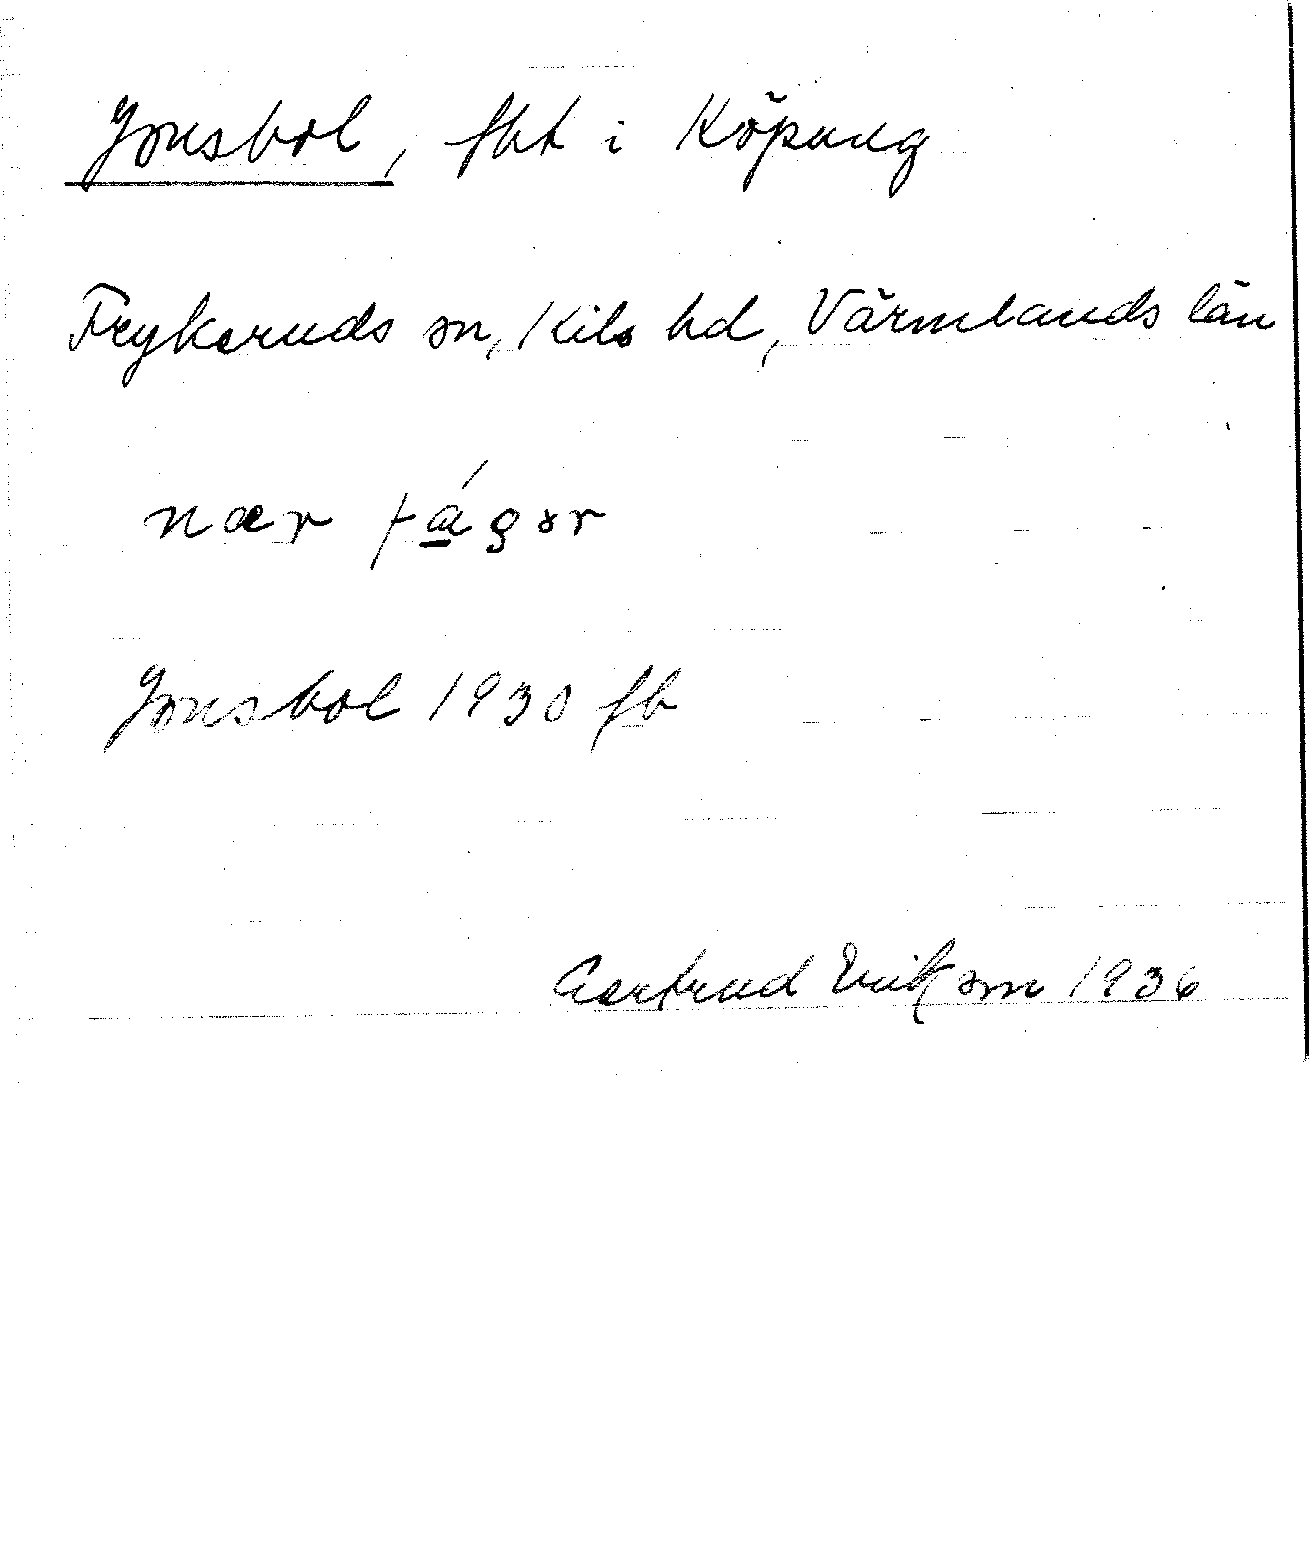 Jonsbol, fbt i Köpung
Frykeruds sn, Kils hd, Värmlands län
nær
Jonsbol 1930 fb
Gertrud Erikson 1936